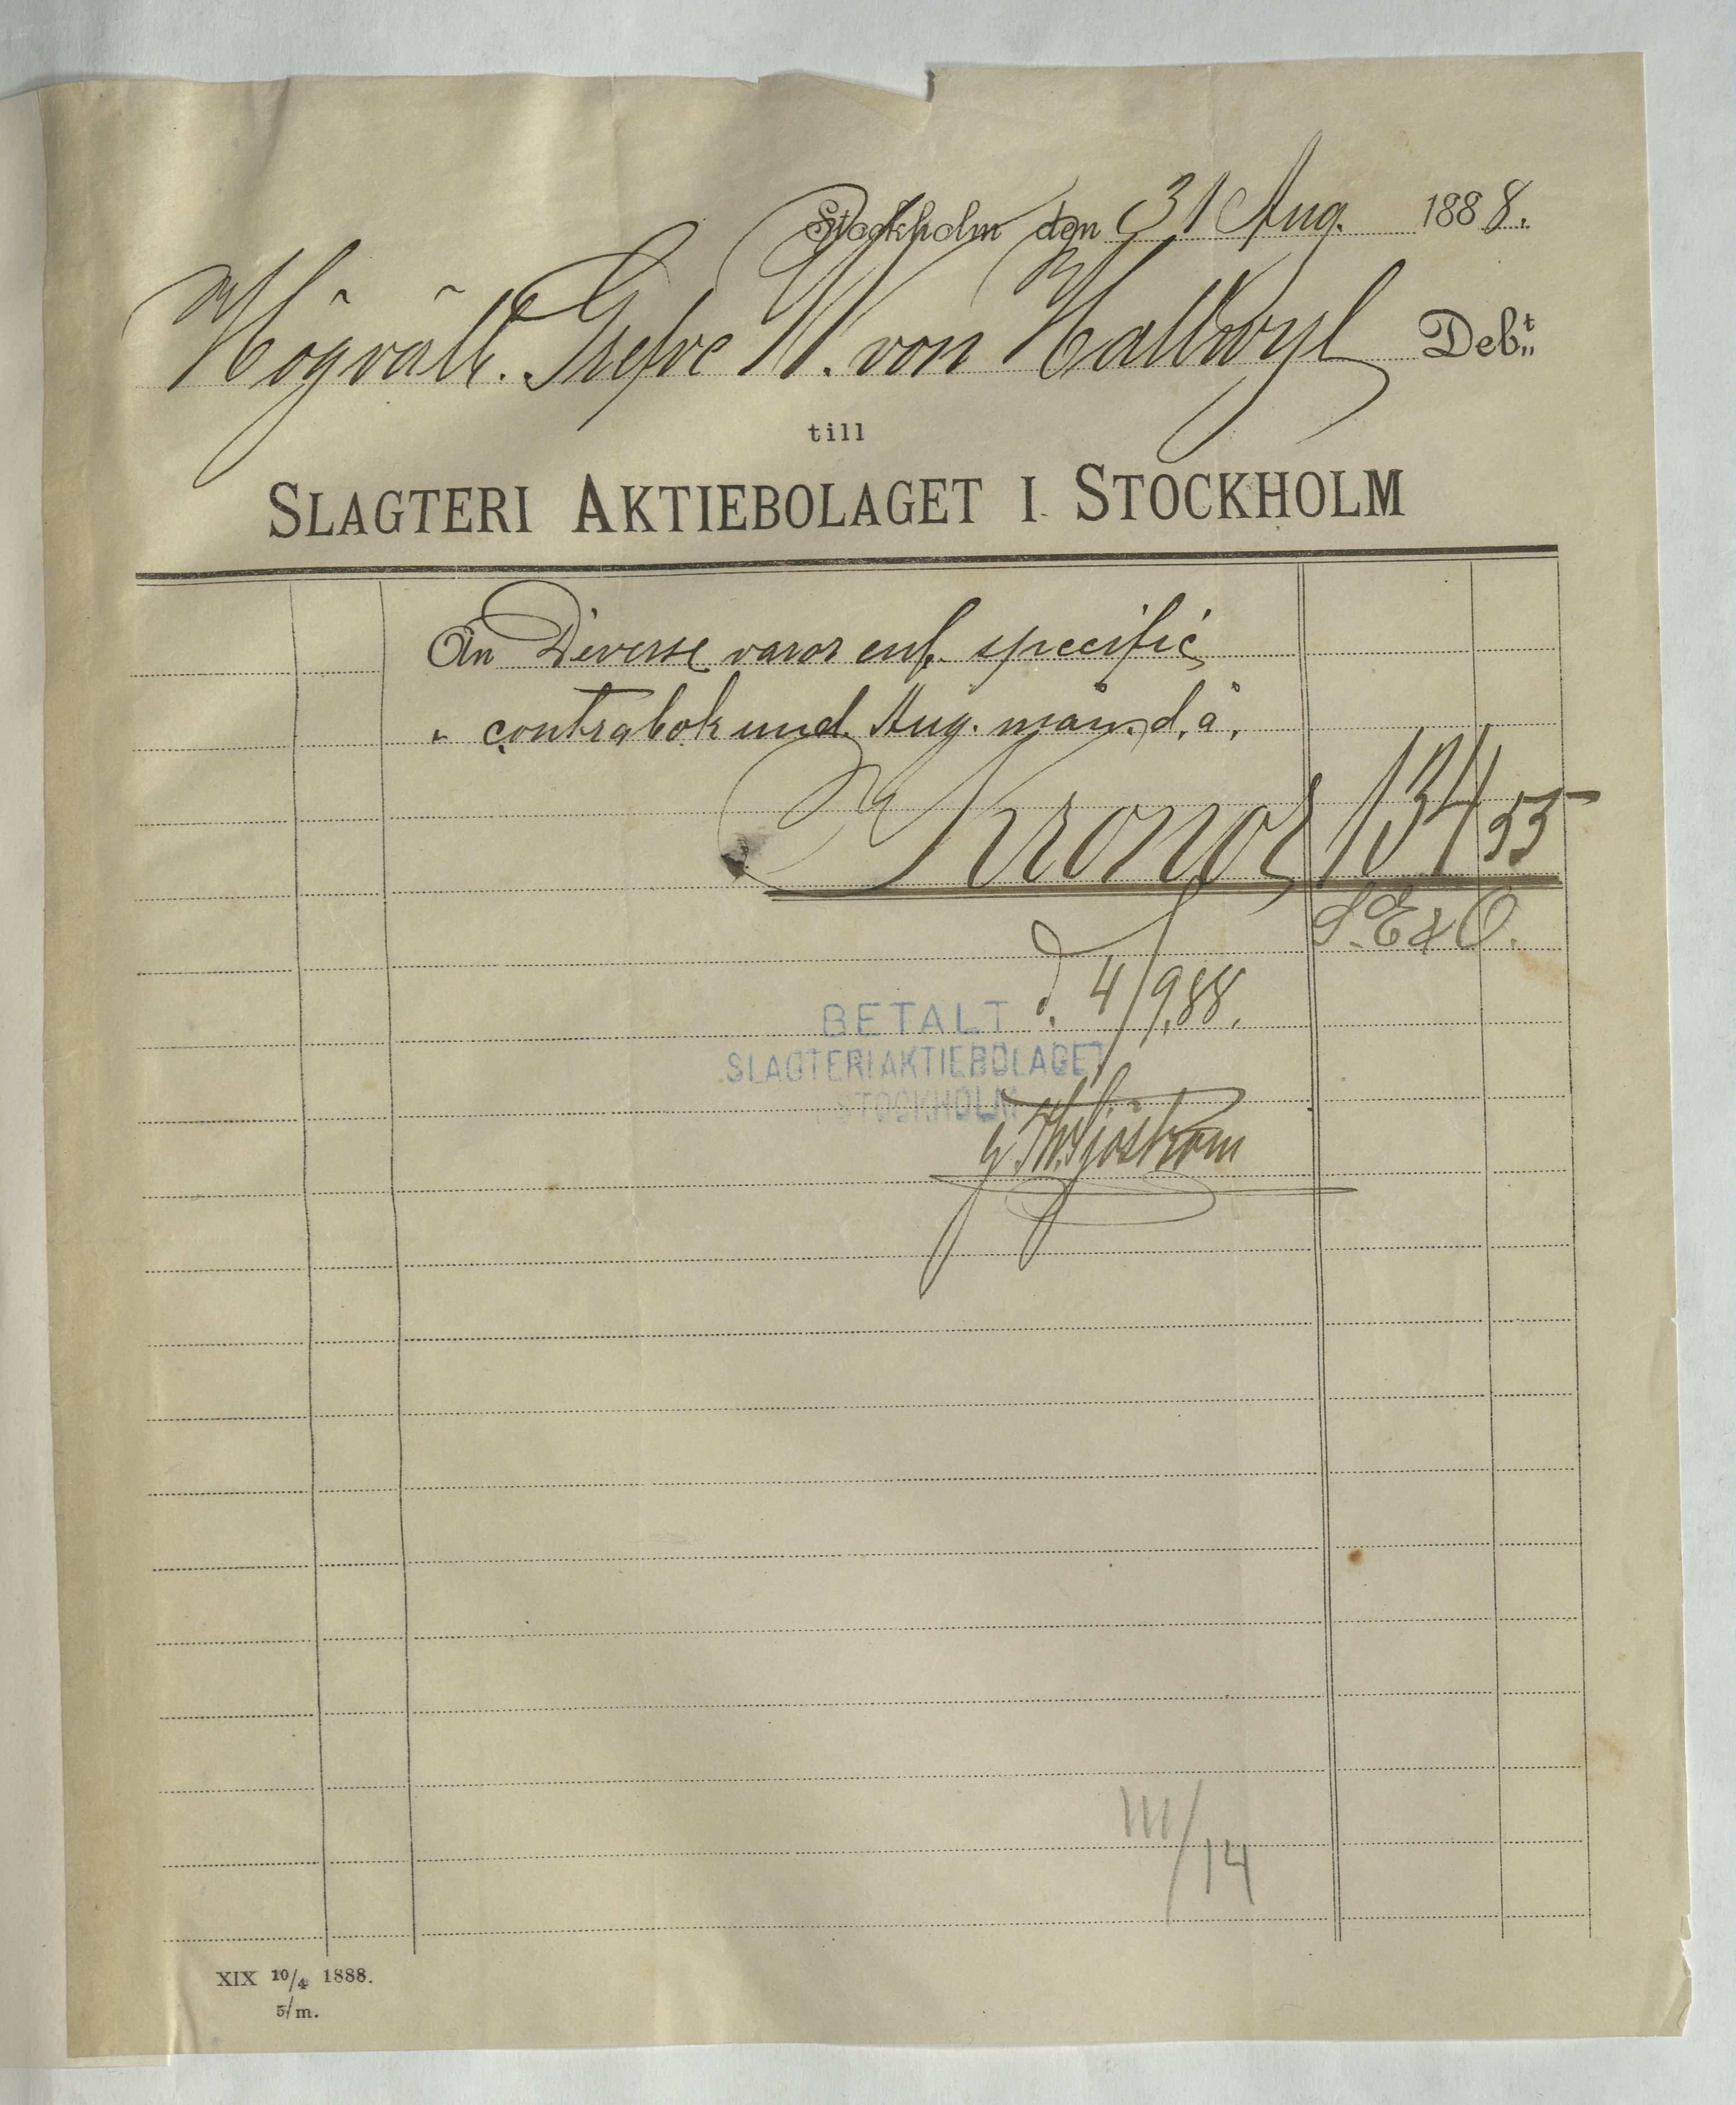 Stockholm den 31 Aug. 1888.
Högvälb. Grefve W. von Hallwyl Deb:t
till
SLAGTERI AKTIEBOLAGET I STOCKHOLM
An Diverse varor enl. specific
" contrabok und. Aug. mån. d. å.
Kronor 134 55
S. E & O.
d. 4/9.88.
BETALT
SLAGTERIAKTIEBOLAGET
I STOCKHOLM
Sjöström
III/14
XIX 10/4 1888.
5/m.